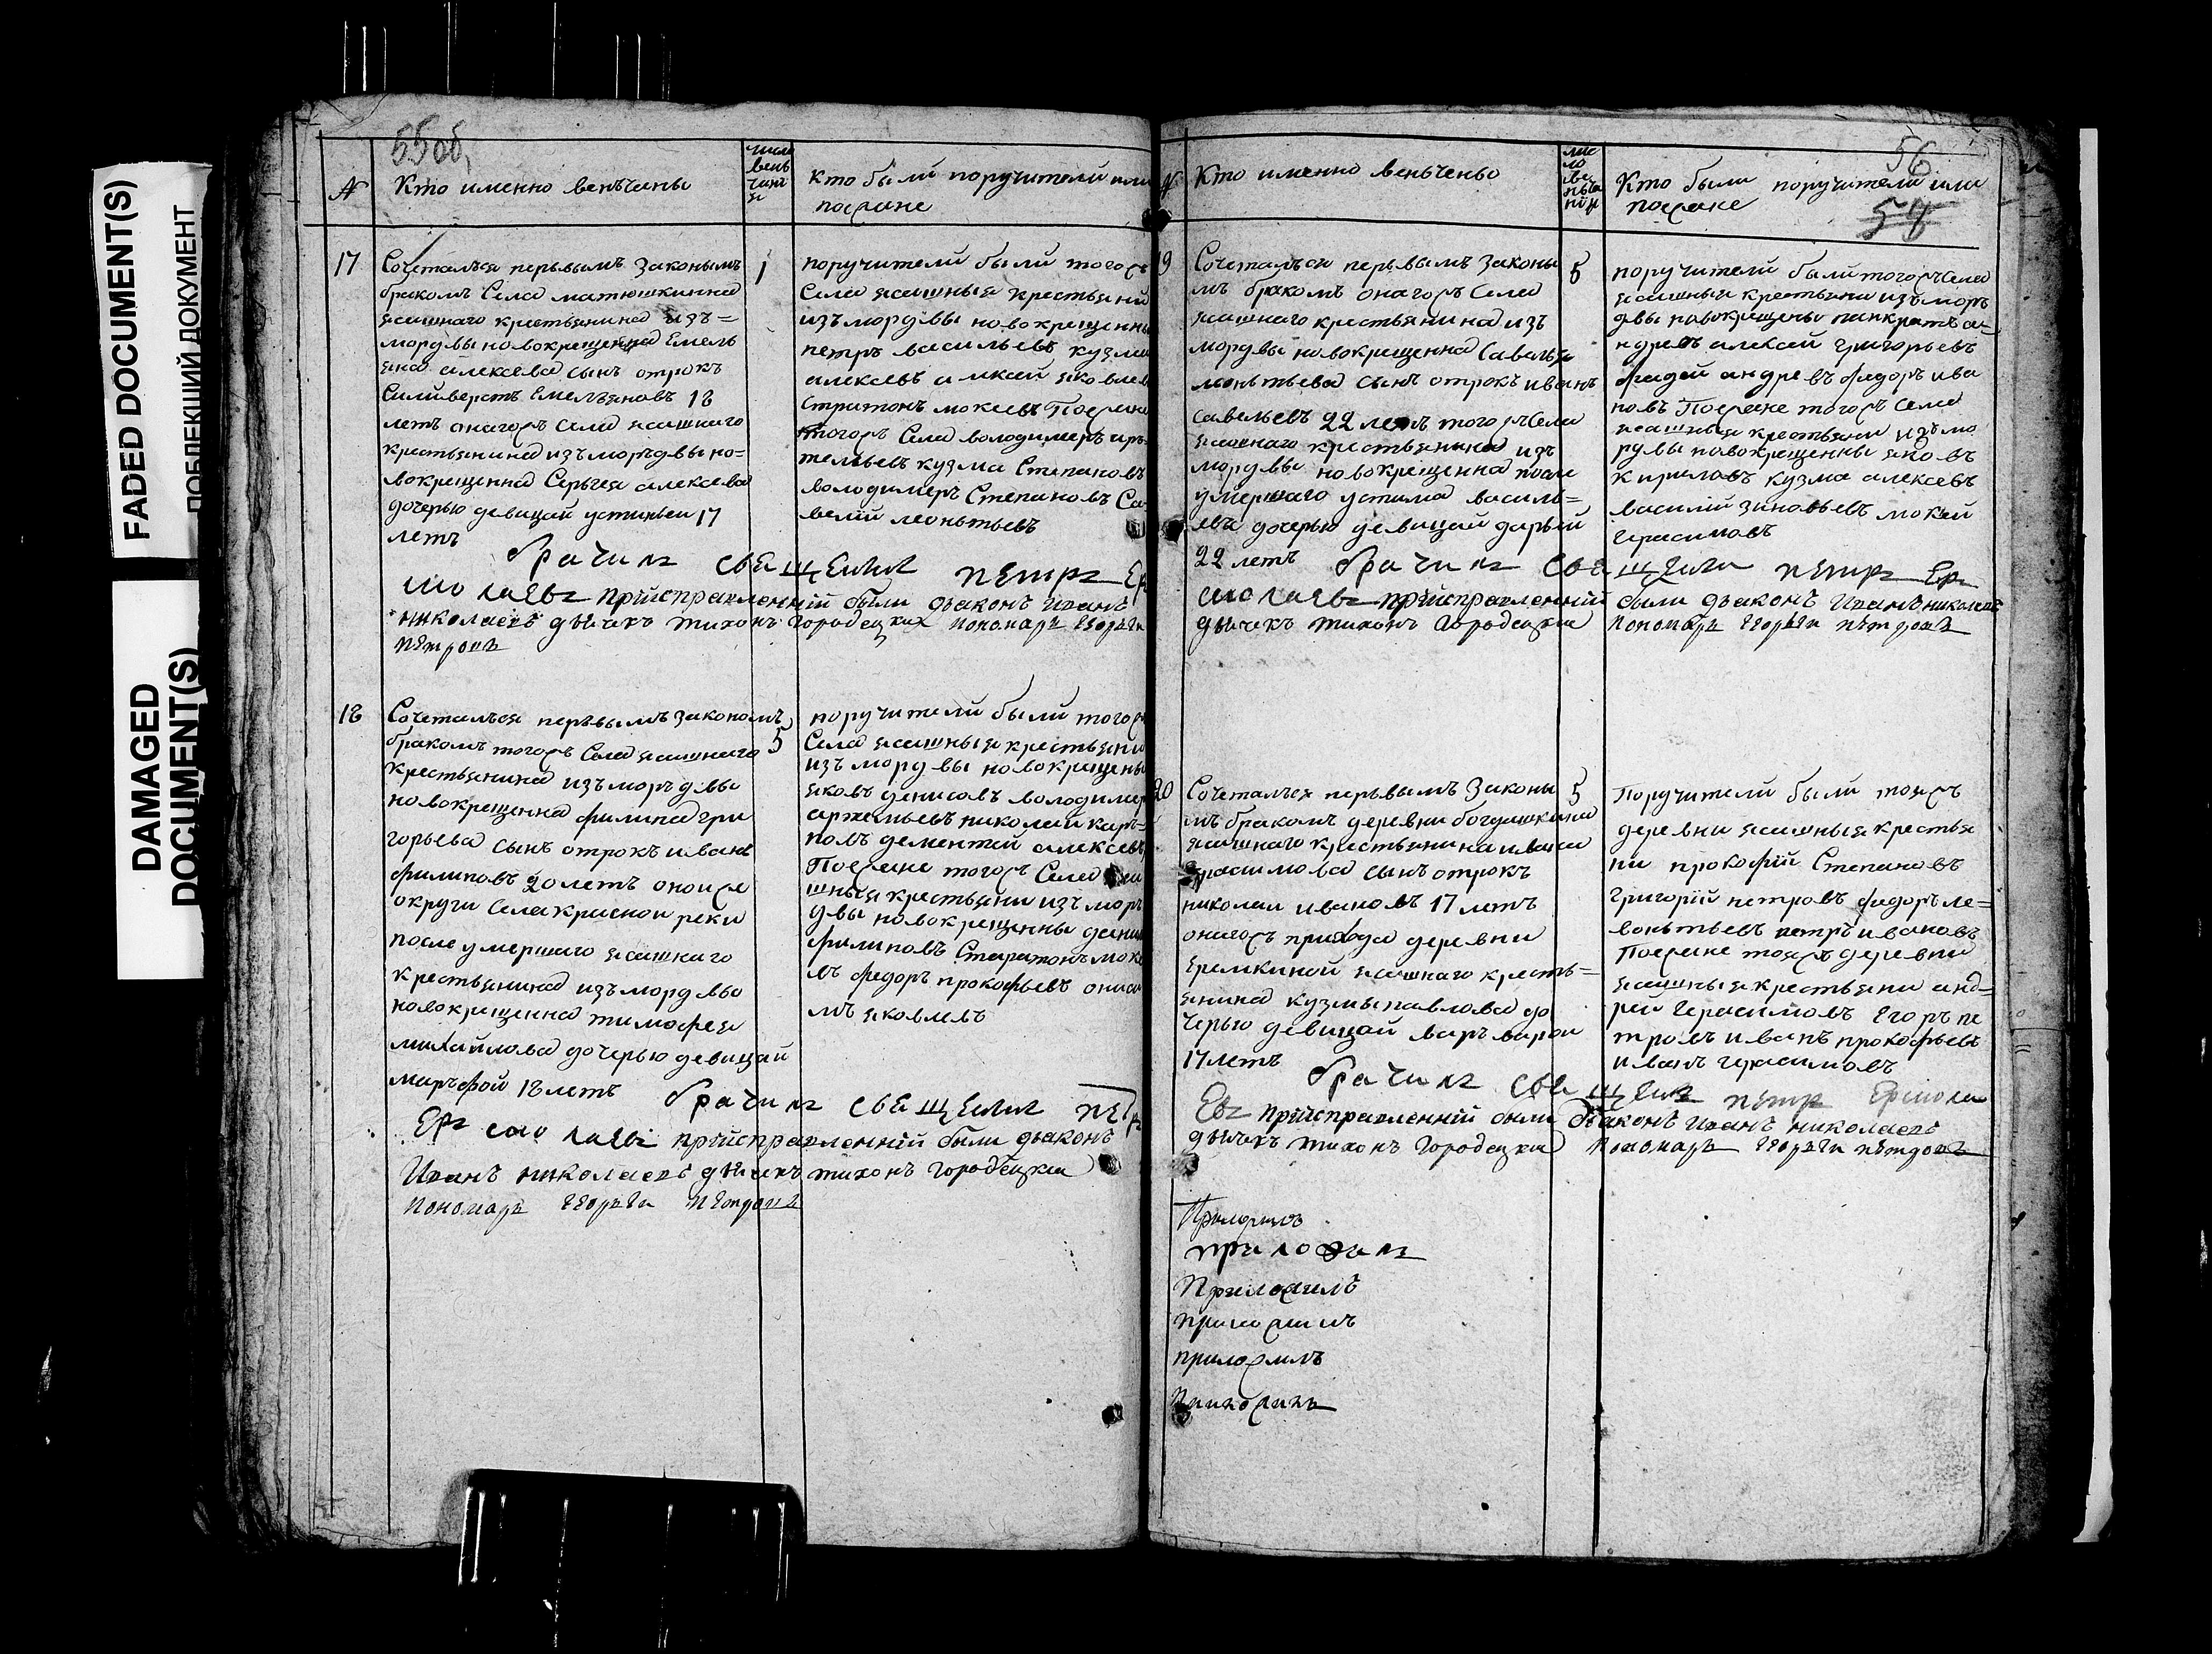 FADED DOCUMENT(S)
ПОБЛЕКШИЙ ДОКУМЕНТ
DAMAGED
DOCUMENT(S)
55об.
№ Кто именно венъчаны
число венъчания
кто были поручители или
поезжане
17
Сочеталъся перьвымъ законымъ
бракомъ Села матюшкинна
ясашнаго крестьянина изъ=
мордвы новокрещенна Емель
яна алексева сынъ отрокъ
Силиверстъ Емельяновъ 18
летъ онагожъ Села ясашнаго
крестьянина изъ моръдвы но=
вокрещенна Серьгея алексева
дочерью девицай устиньеи 17
летъ
1
поручители были тогожъ
Села ясашныя крестьяни
изъ мордвы новокрещенны
петръ васильевъ кузма
алексевъ алексей яковлев
стратонъ мокеевъ Поезжане
тогожъ Села володимеръ
тельевъ кузма Степановъ
володимеръ Степановъ Са
велий леонътьевъ
брачилъ священик петръ Ер
молаевъ прииправленний были дьяконъ Иванъ
николаевъ дьячекъ тихонъ Городецких пономарь Егорьги
петровъ
18
Сочеталъся перьвымъ закономъ
бракомъ тогожъ Села ясашнаго
крестьянина изъ моръдвы
новокрещенна филипа гри
горьева сынъ отрокъ иванъ
филиповъ 20 летъ оноиже
округи Села красной реки
после умершаго ясашнаго
крестьянина изъ мордвы
новокрещенна тимофея
михайлова дочерью девицай
маръфой 18 летъ
5
поручители были тогож
Села ясашныя крестьяни
изъ мордвы новокрещены
яковъ денисовъ володимер
аръжемьевъ николай каръ=
повъ дементей алексевъ
Поезжане тогожъ Села
шныя крестьяни изъ мор
двы новокрещенны
филиповъ Старатонъ моке
въ федоръ прокофьевъ
мъ яковлевъ
брачилъ священик петр
Ермолаевъ прииправленний были дьяконъ
Иванъ николаевъ дьячекъ тихонъ городецкии
Пономарь Егорьги петровъ
56
№ Кто именно венъчены
Кто были поручители или
поезжане
19
Сочеталъся перьвымъ законы
мъ бракомъ онагожъ Села
ясашнаго крестьянина изъ
мордвы новокрещенна Савелья
леонътьева сынъ отрокъ иванъ
савельевъ 22 летъ тогожъ Села
ясашнаго крестьянина изъ
мордвы новокрещенна после
умершаго устима василь=
ева дочерью девицай дарьей
22 летъ
5
поручители были тогожъ Села
ясашныя крестьяни изъ моръ
двы новокрещены панкратъ ан=
древъ алексей григорьевъ
фадей андревъ федоръ ива
новъ Поезжане тогожъ Села
ясашныя крестьяни изъ мо
рдвы новокрещенны яковъ
Кириловъ кузма алексевъ
василий зиновьевъ мокей
герасимовъ
брачилъ священик петръ Ер
молаевъ прииправленний были дьяконъ Иванъ николаевъ
дьячекъ тихонъ Городецкии Пономарь Егорьги петровъ
20
Сочеталъся перьвымъ законы
мъ бракомъ деревни богдашкина
ясашнаго крестьянина ивана
герасимова сынъ отрокъ
николаи ивановъ 17 летъ
онагожъ прихода деревни
Еремкиной ясашнаго кресть=
янина кузмы павлова до
черью девицай варъварои
17 летъ
5
Поручители были тояжъ
деревни ясашныя кресьтья
ни прокофий Степановъ
Григорий петровъ федоръ ле=
вонътьевъ петръ ивановъ
Поезжане тояжъ деревни
ясашныя крестьяни анд=
рей Герасимовъ Егоръ пе
тровъ иванъ прокофьевъ
иванъ герасимовъ
брачилъ священик петръ Ермола
Евъ прииправленний были дьяконъ Иванъ николаевъ
дьячекъ тихонъ Городецкии Пономарь Егорьги петровъ
Приложилъ
приложилъ
Приложилъ
приложилъ
приложилъ